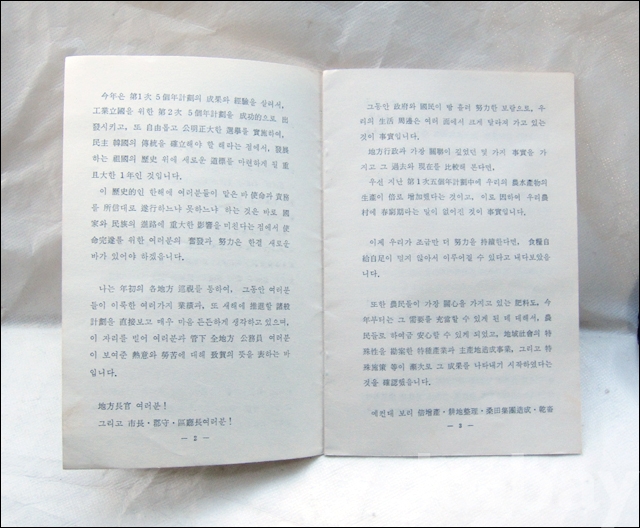 今年은 第1次 5個年計劃의 成果와 經驗을 살려서,
工業立國을 위한 第2次 5個年計劃을 成功的으로 出
發시키고, 또 自由롭고 公明正大한 選擧를 實施하여,
民主 韓國의 傳統을 確立해야 할 해라는 점에서, 發展
하는 祖國의 歷史 위에 새로운 道標를 마련하게 될 重
且大한 1年인 것입니다.
이 歷史的인 한해에 여러분들이 맡은 바 使命과 責務
를 所信대로 遂行하느냐 못하느냐 하는 것은 바로 國
家와 民族의 進路에 重大한 影響을 미친다는 점에서 使
命完遂를 위한 여러분의 奮發과 努力은 한결 새로운
바가 있어야 하겠읍니다.
나는 年初의 各地方 巡視를 통하여, 그동안 여러분
들이 이룩한 여러가지 業績과, 또 새해에 推進할 諸般
計劃을 直接보고 매우 마음 든든하게 생각하고 있으며,
이 자리를 빌어 여러분과 管下 全地方 公務員 여러분
이 보여준 熱意와 勞苦에 대해 致賀의 뜻을 表하는 바
입니다.
地方長官 여러분!
그리고 市長·郡守·區廳長여러분!
— 2 —
그동안 政府와 國民이 땀 흘려 努力한 보람으로, 우
리의 生活 周邊은 여러 面에서 크게 달라져 가고 있는
것이 事實입니다.
地方行政과 가장 關聯이 깊었던 몇 가지 事實을 가
지고 그 過去와 現在를 比較해 본다면,
우선 지난 第1次五個年計劃中에 우리의 農水產物의
生產이 倍로 增加했다는 것이고, 이로 因하여 우리 農
村에 春窮期라는 말이 없어진 것이 事實입니다.
이제 우리가 조금만 더 努力을 持續한다면, 食糧自
給自足이 멀지 않아서 이루어질 수 있다고 내다보았읍
니다.
또한 農民들이 가장 關心을 가지고 있는 肥料도, 今
年부터는 그 需要를 充當할 수 있게 된 데 대해서, 農
民들로 하여금 安心할 수 있게 되었고, 地域社會의 特
殊性을 勘案한 特殊產業과 主產地造成事業, 그리고 特
殊施策 等이 漸次로 그 成果를 나타내기 시작하였다는
것을 確認했읍니다.
예컨대 보리 倍增產·耕地整理·桑田集團造成·乾畓
— 3 —